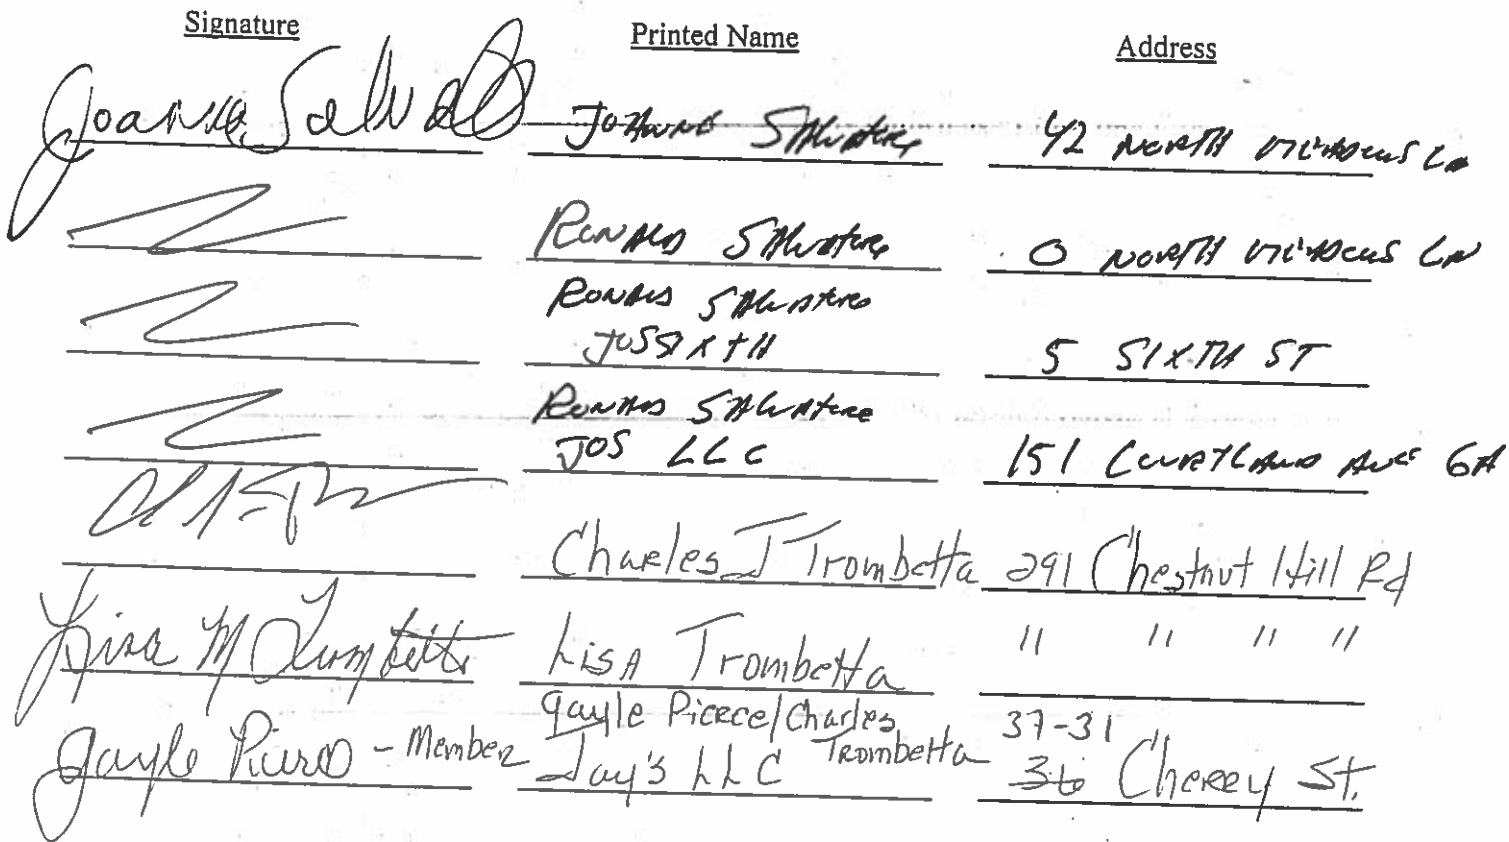 Signature Printed Name Address
Joanne Salvatore JoAnne Salvatore 42 North Meadows Ln
Ronald Salvatore 0 North Meadows Ln
Ronald Salvatore
JOSSIXTH 5 SIXTH ST
Ronald Salvatore
JOS LLC 151 Courtland Ave 6A
Charles J Trombetta 291 Chestnut Hill Rd
Lisa M Trombetta Lisa Trombetta " " " "
Gayle Pierce/Charles 37-31
Gayle Pierce - Member Jay's LLC Trombetta 36 Cherry St.